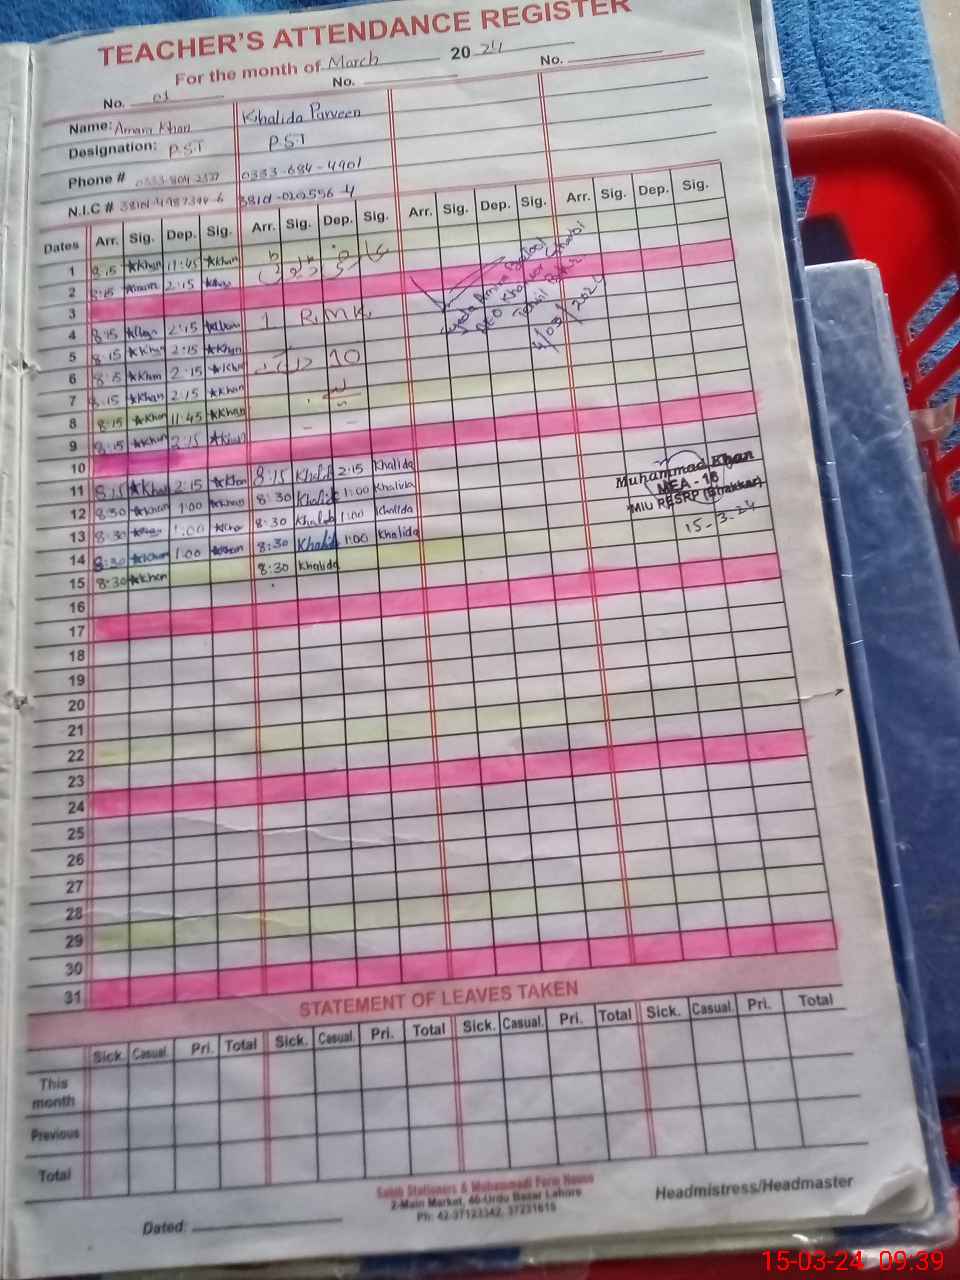 TEACHER'S ATTENDANCE REGISTER
For the month of March 20 24
No. 01 No. No.
Name: Amara Khan Khalida Parveen
Designation: P.S.T P.S.T
Phone # 0333-684-4901
N.I.C #
Dates Arr. Sig. Dep. Sig. Arr. Sig. Dep. Sig. Arr. Sig. Dep. Sig. Arr. Sig. Dep. Sig.
1 8:15 Khan 11:45 Khan
2 8:15 Amara 2:15
3
4 8:15 2:15
5 8:15 Khan 2:15 Khan
6 8:15 Khan 2:15 Khan
7 8:15 Khan 2:15 Khan
8 8:15 Khan 11:45 Khan
9 8:15 Khan 2:15 Khan
10
11 8:15 Khan 2:15 Khan 8:15 Khalida 2:15 Khalida
12 8:30 Khan 1:00 Khan 8:30 Khalida 1:00 Khalida
13 8:30 Khan 1:00 Khan 8:30 Khalida 1:00 Khalida
14 8:30 Khan 1:00 Khan 8:30 Khalida 1:00 Khalida
15 8:30 Khan 8:30 Khalida
Muhammad Khan
MEA - 18
MIU PESRP (Bhakkar)
15-3-24
16
17
18
19
20
21
22
23
24
25
26
27
28
29
30
31
STATEMENT OF LEAVES TAKEN
Sick. Casual. Pri. Total Sick. Casual. Pri. Total Sick. Casual. Pri. Total Sick. Casual. Pri. Total
This month
Previous
Total
Stationers & Muhammadi Form House
2-Main Market, 40-Urdu Bazar Lahore
Ph: 42-37123342, 37231616
Dated: Headmistress/Headmaster
15-03-24 09:39